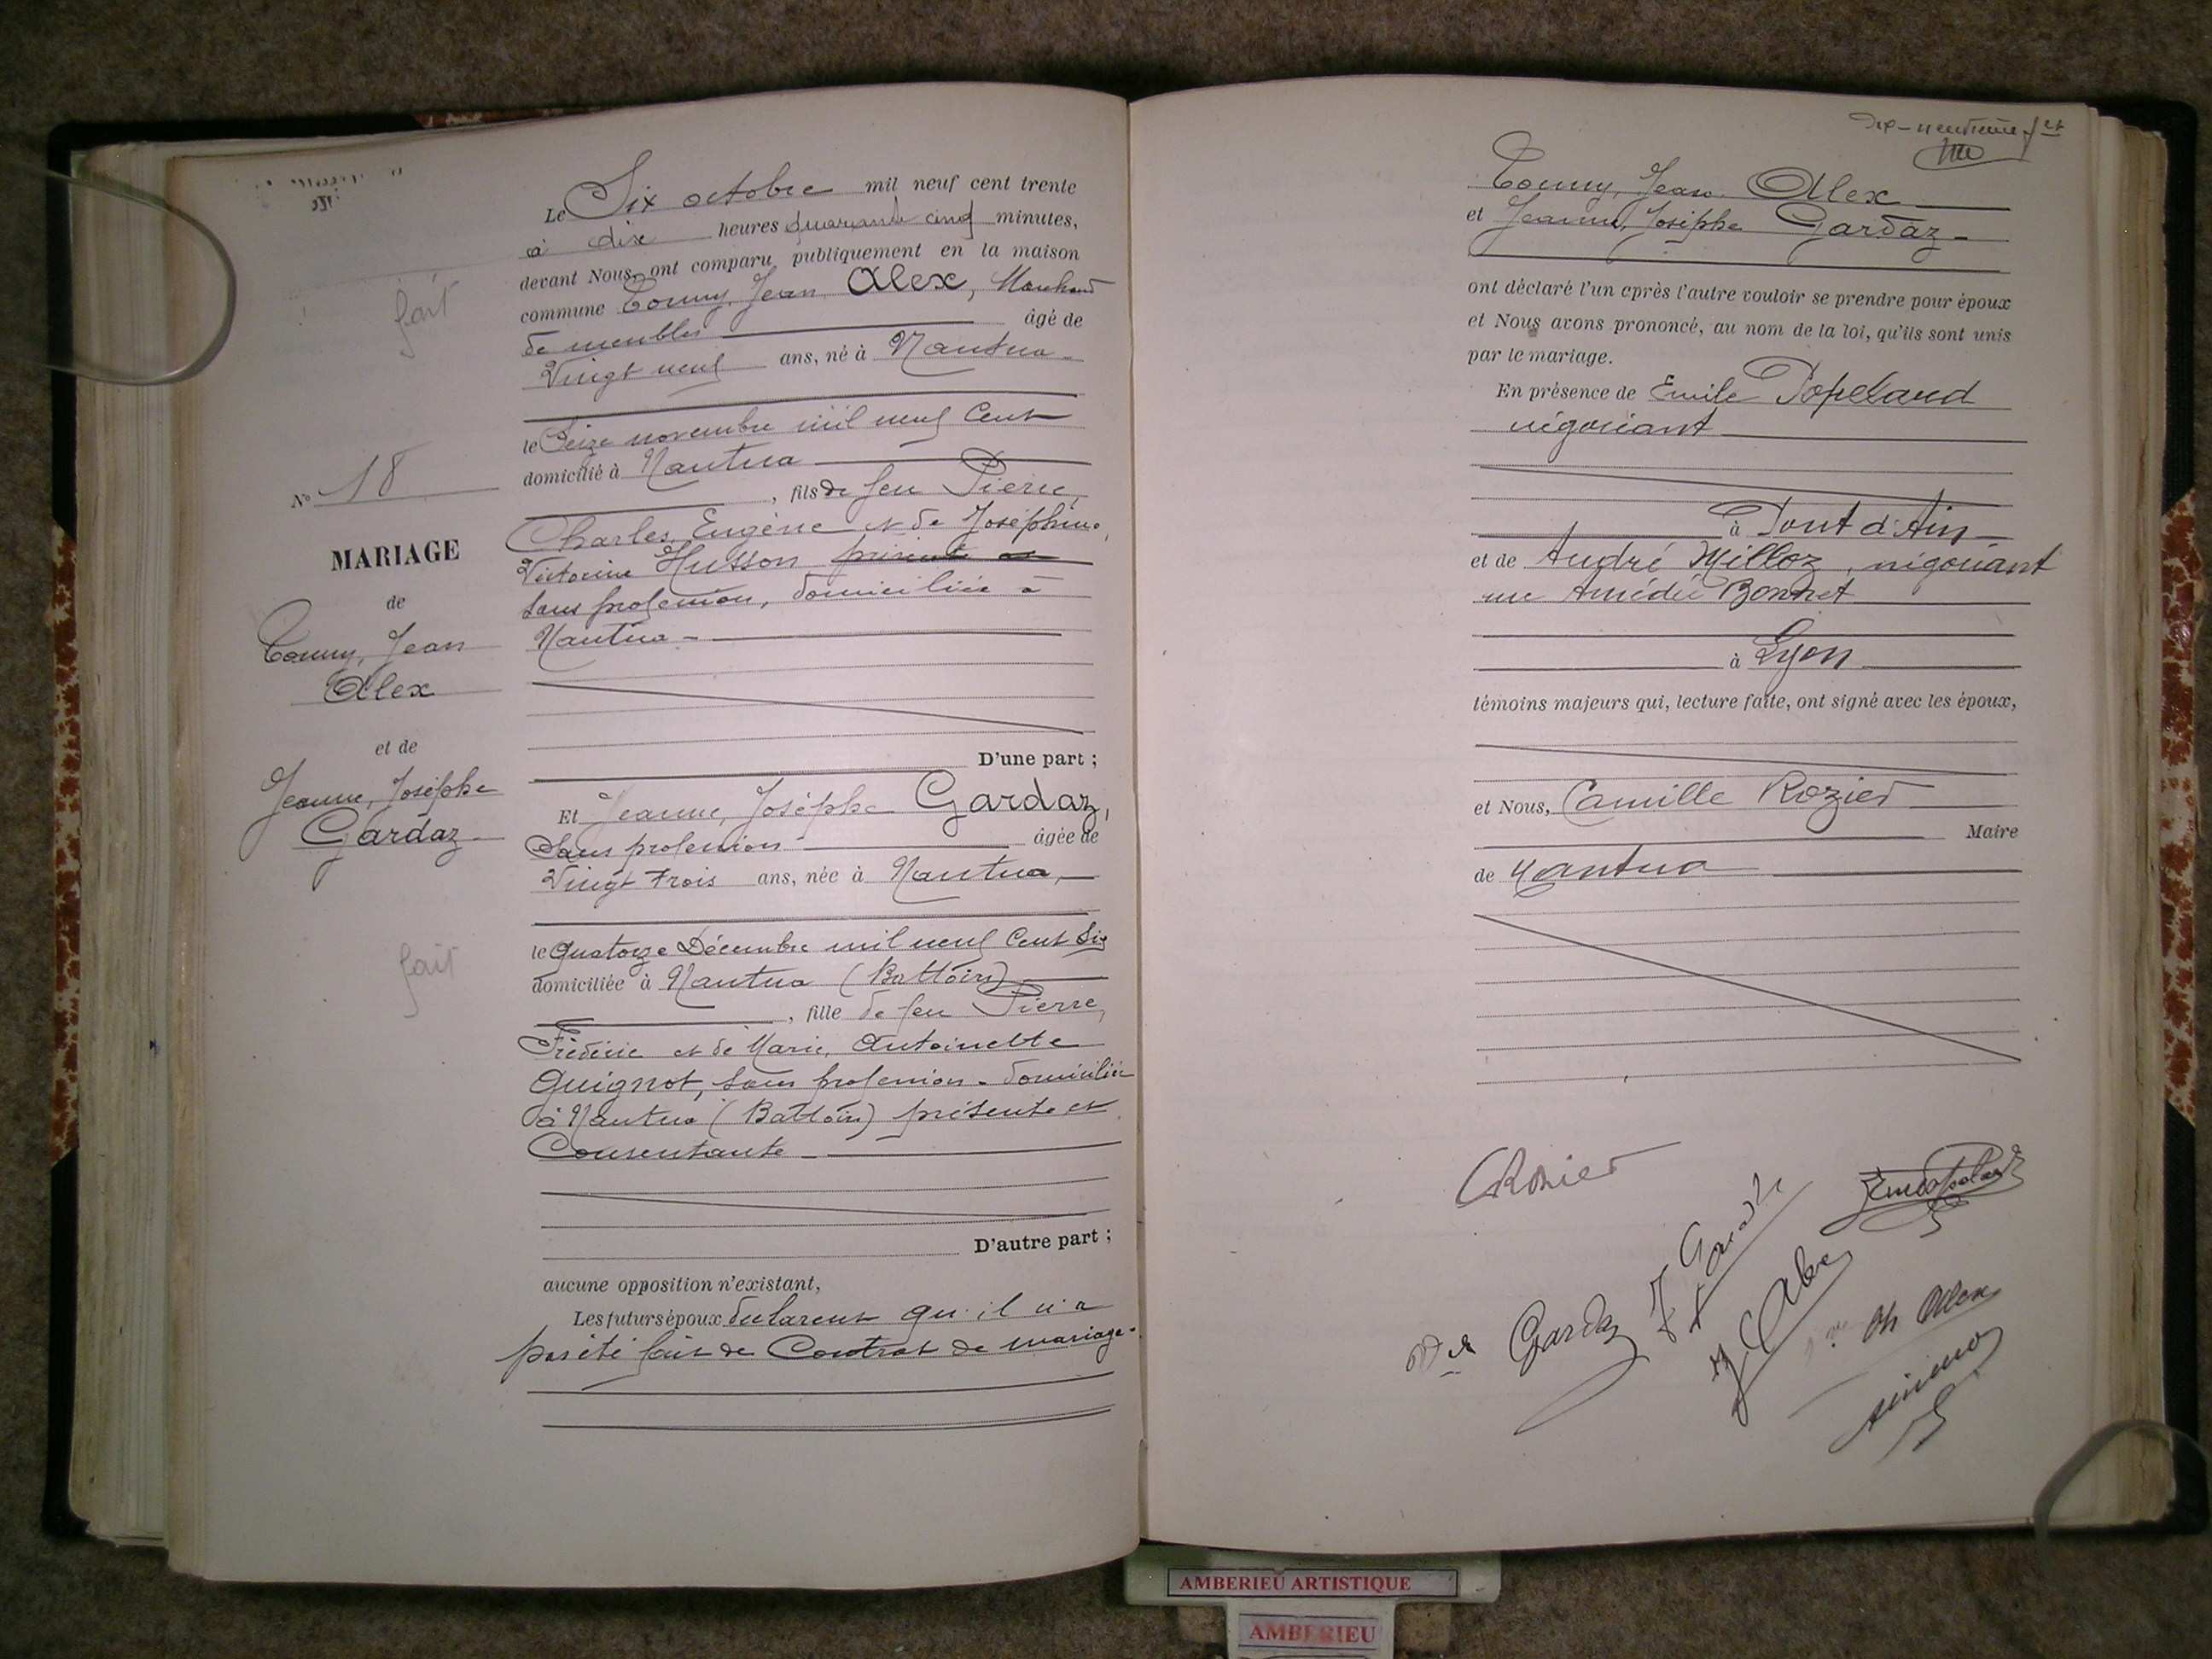 fait
N° 18
MARIAGE
de
Tonny, Jean
Alex
et de
Jeanne, Josèphe
Gardaz
fait
Le Six octobre mil neuf cent trente
à dix heures quarante cinq minutes,
devant Nous, ont comparu publiquement en la maison
commune Tonny, Jean Alex, Marchand
de meubles âgé de
Vingt neuf ans, né à Nantua
le Seize novembre mil neuf Cent
domicilié à Nantua
, fils de feu Pierre,
Charles, Eugène et de Joséphine,
Victorine Husson
sans profession, domiciliée à
Nantua
D'une part ;
Et Jeanne, Josèphe Gardaz,
Sans profession âgée de
Vingt trois ans, née à Nantua,
le quatorze Décembre mil neuf Cent Six
domiciliée à Nantua (Battoirs)
, fille de feu Pierre,
Frédéric et de Marie, Antoinette
Guignot, sans profession domiciliée
à Nantua (Battoirs) présente et
Consentante
D'autre part ;
aucune opposition n'existant,
Les futurs époux déclarent qu'il n'a
pas été fait de Contrat de mariage.
Dix-neuvième f et
Tonny, Jean Alex
et Jeanne, Josèphe Gardaz
ont déclaré l'un après l'autre vouloir se prendre pour époux
et Nous avons prononcé, au nom de la loi, qu'ils sont unis
par le mariage.
En présence de Emile Popelard
négociant
à Pont d'Ain
et de André Milloz, négociant
rue Amédée Bonnet
à Lyon
témoins majeurs qui, lecture faite, ont signé avec les époux,
et Nous, Camille Rozier
Maire
de Nantua
CRozier
Vve Gardaz
J Gardaz
J Alex
Vve Ch Alex
AMBERIEU ARTISTIQUE
AMBERIEU